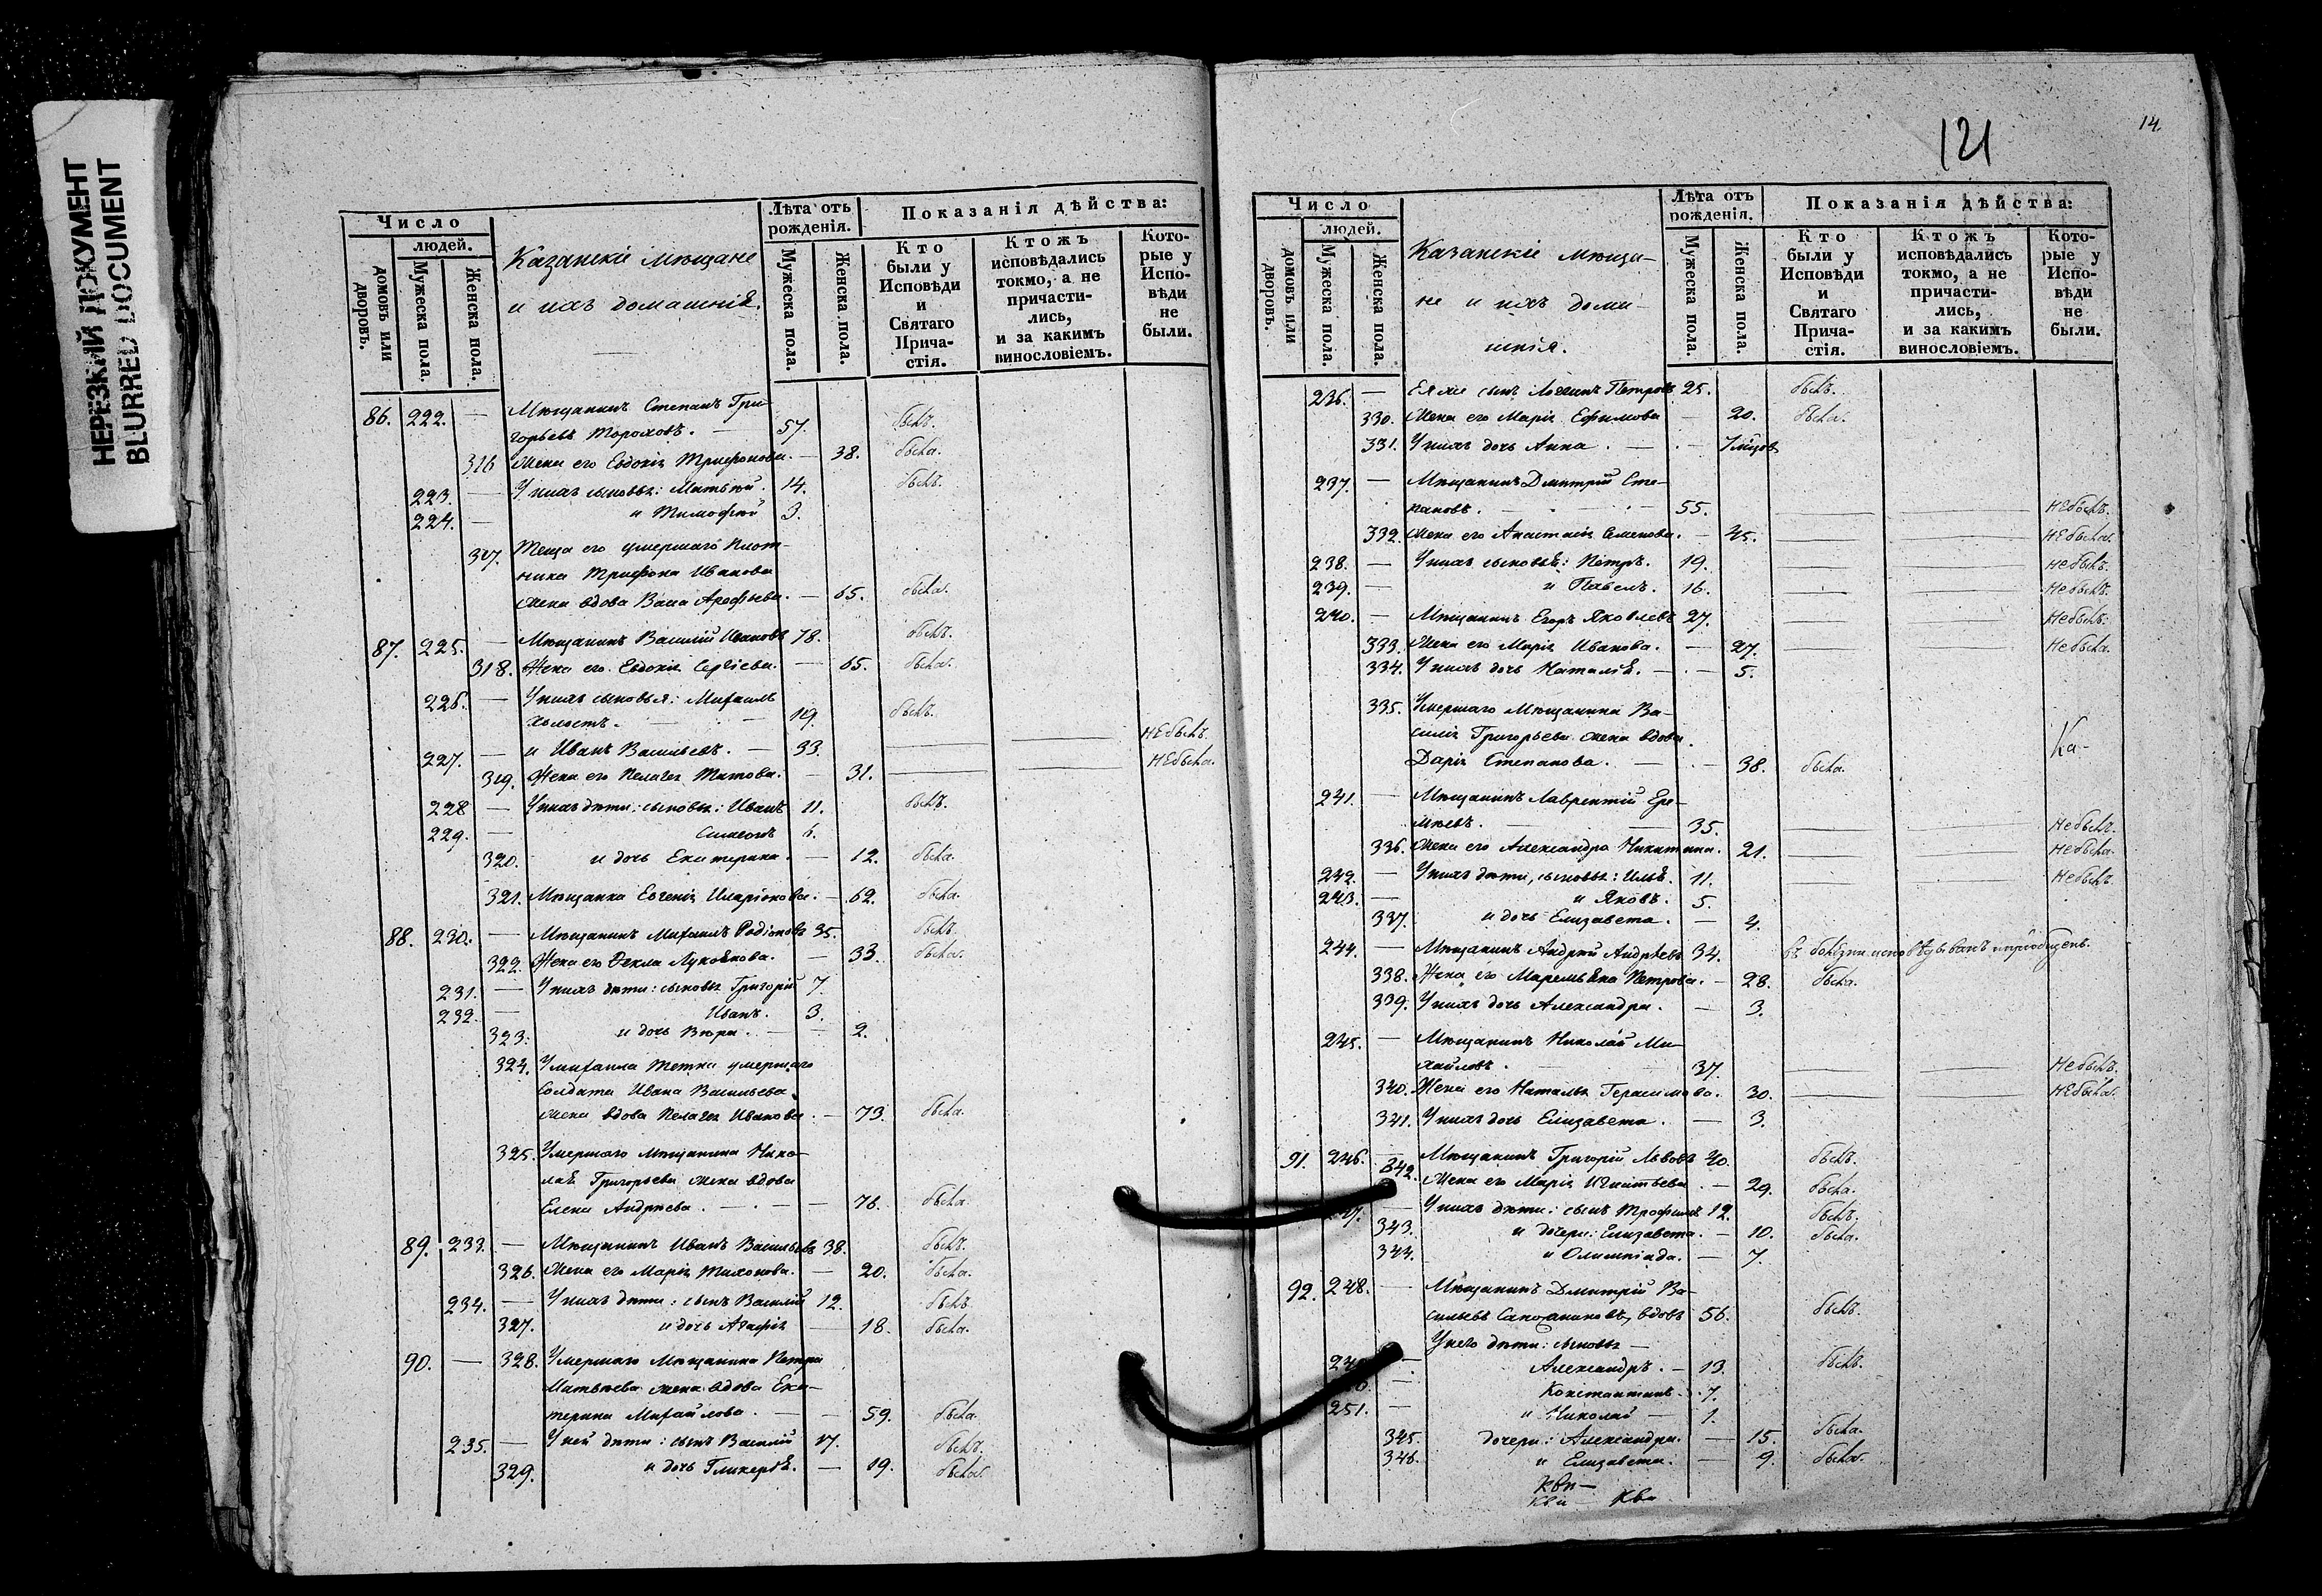 НЕРЕЗКИЙ ДОКУМЕНТ
BLURRED DOCUMENT
Число
людей.
домовъ или дворовъ.
Мужеска пола.
Женска пола.
Казанскіе мѣщане
и ихъ домашнія.
Лѣта отъ рожденія.
Мужеска пола.
Женска пола.
Показанія дѣйства:
Кто были у Исповѣди и Святаго Причастія.
Ктожъ исповѣдались токмо, а не причастились, и за какимъ винословіемъ.
Которые у Исповѣди не были.
86. 222. — Мѣщанинъ Степанъ Гри-
горьевъ Тороховъ. — 57 былъ.
316 Жена его Евдокія Трифонова. — 38. была.
223. — У нихъ сыновья: Матвѣй. 14. былъ.
224. — и Тимофей 3.
317. Теща его умершаго плот-
ника Трифона Иванова
жена вдова Васса Арефьева. — 65. была.
87. 225. — Мѣщанинъ Василій Ивановъ 78. былъ.
318. Жена его Евдокія Сергіева. — 65. была.
226. — У нихъ сыновья: Михаилъ
холостъ. — 19. былъ.
227. — и Иванъ Васильевъ. — 33. — — Не былъ.
319. Жена его Пелагея Титова. — 31. — — Не была.
228 — У нихъ дѣти: сыновья: Иванъ 11. былъ.
229. — Симеонъ 6.
320. и дочь Екатерина. — 12. была.
321. Мѣщанка Евгенія Иларіонова. — 62. была.
88. 230. — Мѣщанинъ Михаилъ Родіоновъ 35. былъ.
322. Жена его Фекла Лукоянова. — 33. была.
231. — У нихъ дѣти: сыновья Григорій 7.
232. — Иванъ. 3.
323. и дочь Вѣра. — — 2.
324. У Михаила тетка умершаго
солдата Ивана Васильева
жена вдова Пелагея Иванова. — 73. была.
325. Умершаго мѣщанина Нико-
лая Григорьева жена вдова
Елена Андреева. — — — 76. была.
89. 233. — Мѣщанинъ Иванъ Васильевъ 38. былъ.
326. Жена его Марія Тихонова. — 20. была.
234. — У нихъ дѣти: сынъ Василій 12. былъ.
327. и дочь Агафія — 18. была.
90. — 328. Умершаго мѣщанина Петра
Матвѣева жена вдова Ека-
терина Михайлова. — — 59. была.
235. — У ней дѣти: сынъ Василій 17. былъ.
329. и дочь Гликерія. — 19. была.
121
14.
Число
людей.
домовъ или дворовъ.
Мужеска пола.
Женска пола.
Казанскіе мѣща-
не и ихъ дома-
шнія.
Лѣта отъ рожденія.
Мужеска пола.
Женска пола.
Показанія дѣйства:
Кто были у Исповѣди и Святаго Причастія.
Ктожъ исповѣдались токмо, а не причастились, и за какимъ винословіемъ.
Которые у Исповѣди не были.
236. — Ея же сынъ Логинъ Петровъ 25. былъ.
330. Жена его Марія Ефимова — 20. была.
331. У нихъ дочь Анна. — — 7 мѣсцов
237. — Мѣщанинъ Дмитрій Сте-
пановъ. — — 55. — — Не былъ.
332. Жена его Анастасія Семенова. — 45. — — Не была.
238. — У нихъ сыновья: Петръ. 19. — — Не былъ.
239. — и Павелъ. 16. — — Не былъ.
240. — Мѣщанинъ Егоръ Яковлевъ 27. — — Не былъ.
333. Жена его Марія Иванова. — 27. — — Не была.
334. У нихъ дочь Наталія. — — 5.
335. Умершаго мѣщанина Ва-
силія Григорьева жена вдова
Дарія Степанова. — — 38. была.
Ка-
241. — Мѣщанинъ Лаврентій Ере-
мѣевъ. — — 35. — — Не былъ.
336. Жена его Александра Никитина. 21. — — Не была.
242. — У нихъ дѣти, сыновья: Илья. 11. — — Не былъ.
243. — и Яковъ. 5.
337. и дочь Елизавета. — 4.
244. — Мѣщанинъ Андрей Андреевъ 34. въ болѣзни исповѣдыванъ и пріобщенъ.
338. Жена его Маремьяна Петрова. — 28. была.
339. У нихъ дочь Александра. — 3.
245. — Мѣщанинъ Николай Ми-
хайловъ. — 37. — — Не былъ.
340. Жена его Наталья Герасимова. 30. — — Не была.
341. У нихъ дочь Елизавета. — 3.
91. 246. — Мѣщанинъ Григорій Львовъ 40. былъ.
342. Жена его Марія Игнатьева. — 29. была.
— У нихъ дѣти: сынъ Трофимъ 12. былъ.
343. и дочери: Елизавета. — 10. была.
344. и Олимпіада. — 7.
92. 248. — Мѣщанинъ Дмитрій Ва-
сильевъ Сапожниковъ, вдовъ 56. былъ.
У него дѣти: сыновья —
— Александръ. — 13. былъ.
— Константинъ. 7.
251. — и Николай — 1.
345. дочери: Александра. — 15. была.
346. и Елизавета. — 9. была.